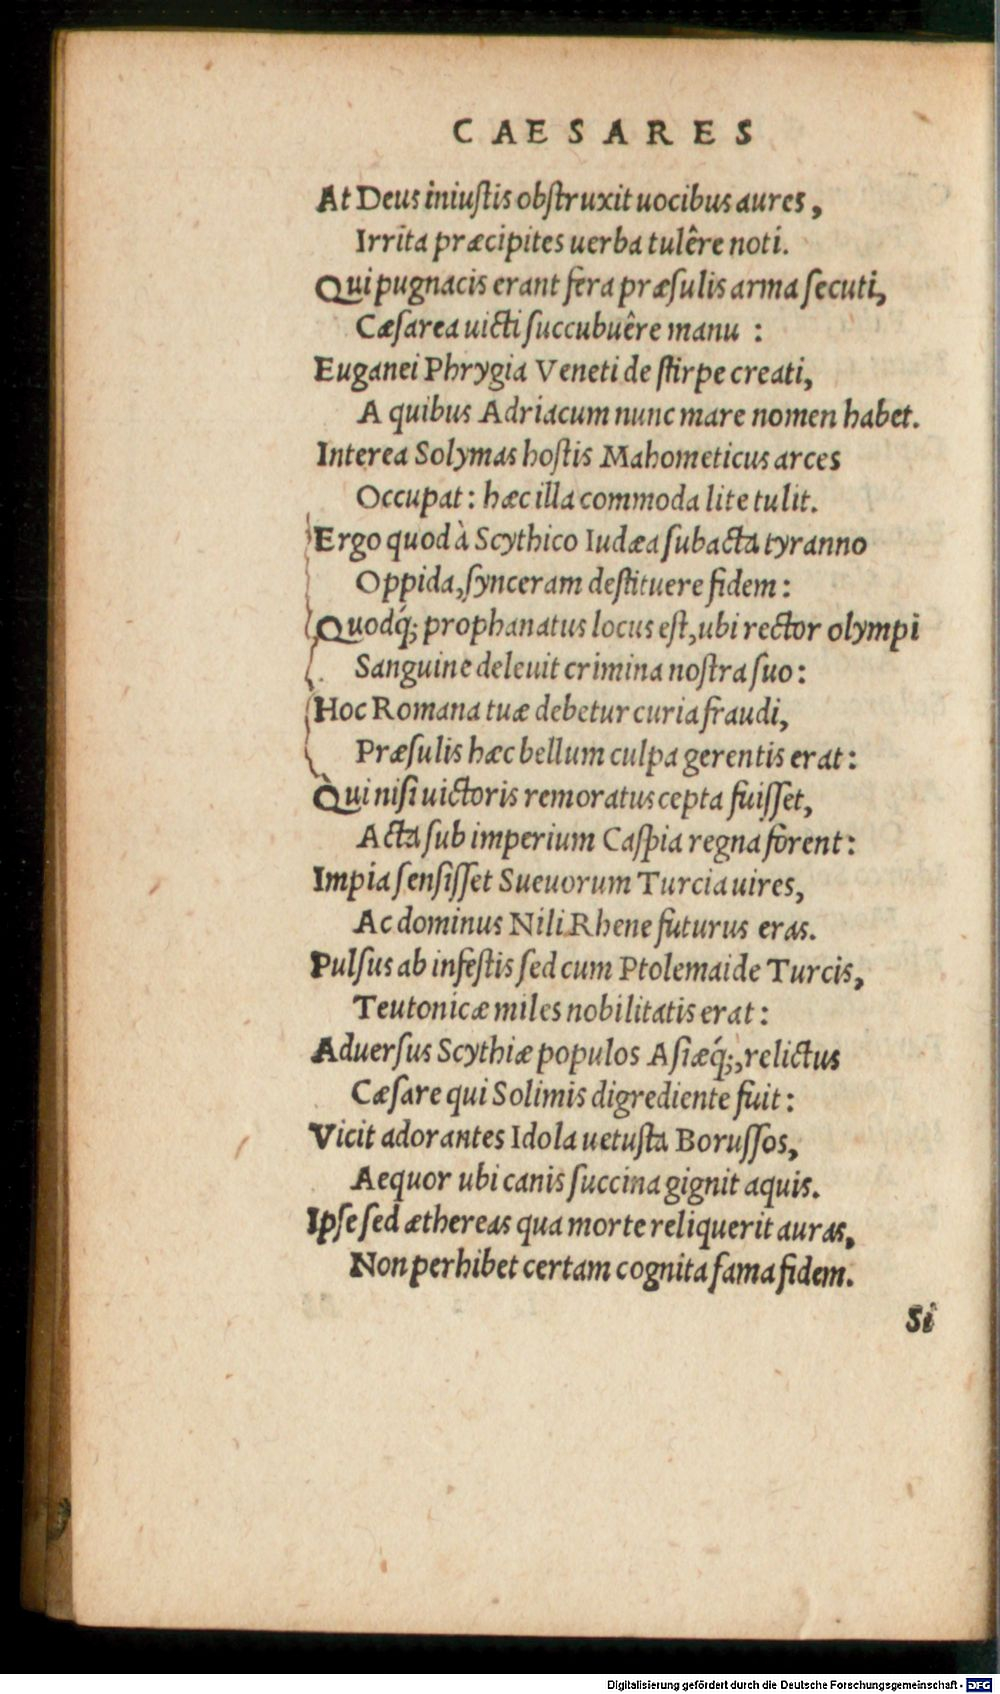 CAESARES
At Deus iniustis obstruxit uocibus aures,
Irrita præcipites uerba tulêre noti.
Qui pugnacis erant fera præsulis arma secuti,
Cæsarea uicti succubuêre manu :
Euganei Phrygia Veneti de stirpe creati,
A quibus Adriacum nunc mare nomen habet.
Interea Solymas hostis Mahometicus arces
Occupat: hæc illa commoda lite tulit.
Ergo quod à Scythico Iudæa subacta tyranno
Oppida, synceram destituere fidem:
Quodq́; prophanatus locus est, ubi rector olympi
Sanguine deleuit crimina nostra suo:
Hoc Romana tuæ debetur curia fraudi,
Præsulis hæc bellum culpa gerentis erat:
Qui nisi uictoris remoratus cepta fuisset,
Acta sub imperium Caspia regna forent:
Impia sensisset Sueuorum Turcia uires,
Ac dominus Nili Rhene futurus eras.
Pulsus ab infestis sed cum Ptolemaide Turcis,
Teutonicæ miles nobilitatis erat:
Aduersus Scythiæ populos Asiæq́;, relictus
Cæsare qui Solimis digrediente fuit:
Vicit adorantes Idola uetusta Borussos,
Aequor ubi canis succina gignit aquis.
Ipse sed æthereas qua morte reliquerit auras,
Non perhibet certam cognita fama fidem.
Si
Digitalisierung gefördert durch die Deutsche Forschungsgemeinschaft - DFG